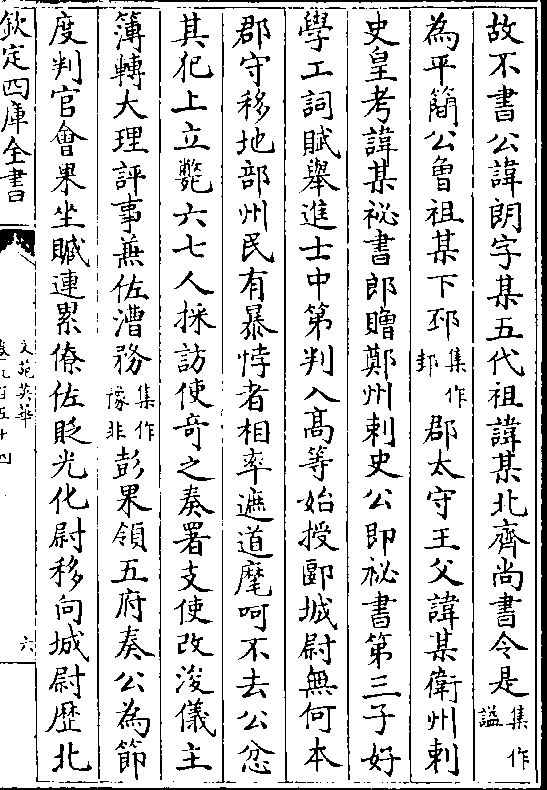 故不書公諱朗字某五代祖諱某北齊尚書令是集作諡
為平簡公曾祖某下邳集作邽郡太守王父諱某衛州刺
史皇考諱某祕書郎贈鄭州刺史公即祕書第三子好
學工詞賦舉進士中第判入髙等始授郾城尉無何本
郡守移地部州民有暴悖者相率遮道麾呵不去公忿
其犯上立斃六七人採訪使竒之奏署支使改浚儀主
簿轉大理評事兼佐漕務集作豫非彭果領五府奏公為節
度判官會果坐贓連累僚佐貶光化尉移向城尉歴北
欽定四庫全書
文苑英華
卷九百五十四
六